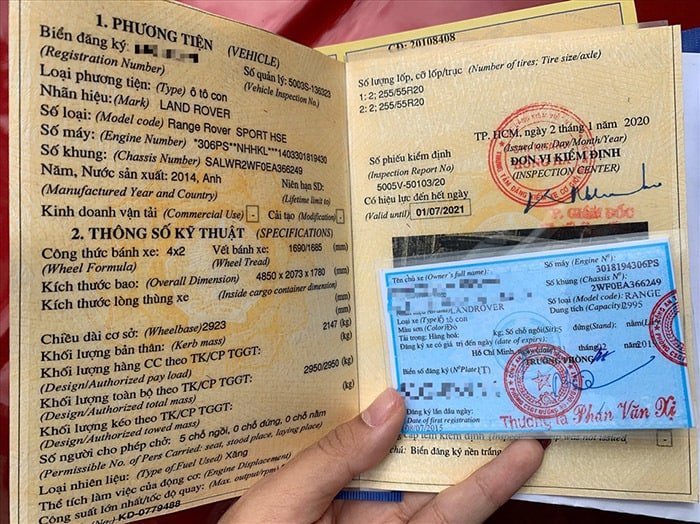 1. PHƯƠNG TIỆN (VEHICLE)
Biển đăng ký:
(Registration Number)
Số quản lý: 5003S-136323
(Vehicle Inspection No.)
Loại phương tiện: (Type) ô tô con
Nhãn hiệu: (Mark) LAND ROVER
Số loại: (Model code) Range Rover SPORT HSE
Số máy: (Engine Number) *306PS**NHHKL***1403301819430
Số khung: (Chassis Number) SALWR2WF0EA366249
Năm, Nước sản xuất: 2014, Anh
(Manufactured Year and Country)
Niên hạn SD:
(Lifetime limit to)
Kinh doanh vận tải (Commercial Use) - Cải tạo (Modification) -
2. THÔNG SỐ KỸ THUẬT (SPECIFICATIONS)
Công thức bánh xe: 4x2 Vết bánh xe: 1690/1685 (mm)
(Wheel Formula) (Wheel Tread)
Kích thước bao: (Overall Dimension) 4850 x 2073 x 1780 (mm)
Kích thước lòng thùng xe (mm)
(Inside cargo container dimension)
Chiều dài cơ sở: (Wheelbase) 2923 (mm)
Khối lượng bản thân: (Kerb mass) 2147 (kg)
Khối lượng hàng CC theo TK/CP TGGT: (kg)
(Design/Authorized pay load)
Khối lượng toàn bộ theo TK/CP TGGT: 2950/2950 (kg)
(Design/Authorized total mass)
Khối lượng kéo theo TK/CP TGGT: (kg)
(Design/Authorized towed mass)
Số người cho phép chở: 5 chỗ ngồi, 0 chỗ đứng, 0 chỗ nằm
(Permissible No. of Pers Carried: seat, stood place, laying place)
Loại nhiên liệu: (Type of Fuel Used) Xăng
Thể tích làm việc của động cơ: (Engine Displacement)
Công suất lớn nhất/tốc độ quay: (Max. output/rpm)
KD-0779488
CD: 20108408
Số lượng lốp, cỡ lốp/trục (Number of tires; Tire size/axle)
1: 2; 255/55R20
2: 2; 255/55R20
TP. HCM, ngày 2 tháng 1 năm 2020
(Issued on: Day/Month/Year)
Số phiếu kiểm định
(Inspection Report No)
5005V-50103/20
ĐƠN VỊ KIỂM ĐỊNH
(INSPECTION CENTER)
Có hiệu lực đến hết ngày
(Valid until) 01/07/2021
P. GIÁM ĐỐC
Tên chủ xe (Owner's full name):
Số máy (Engine Nº):
3018194306PS
Số khung (Chassis Nº):
2WF0EA366249
LANDROVER
Số loại (Model code): RANGE
Loại xe (Type) Ô tô con
Dung tích (Capacity): 2995
Màu sơn (Color) Đỏ
Tải trọng: Hàng hoá: kg; Số chỗ ngồi (Sit): đứng (Stand):
Đăng ký xe có giá trị đến ngày
Hồ Chí Minh,
TRƯỞNG PHÒNG
Biển số đăng ký (N° Plate)
Đăng ký lần đầu ngày:
Date of first registration
Thượng tá Phan Văn Xị
was not issued)
Chú: Biển đăng ký nền trắng